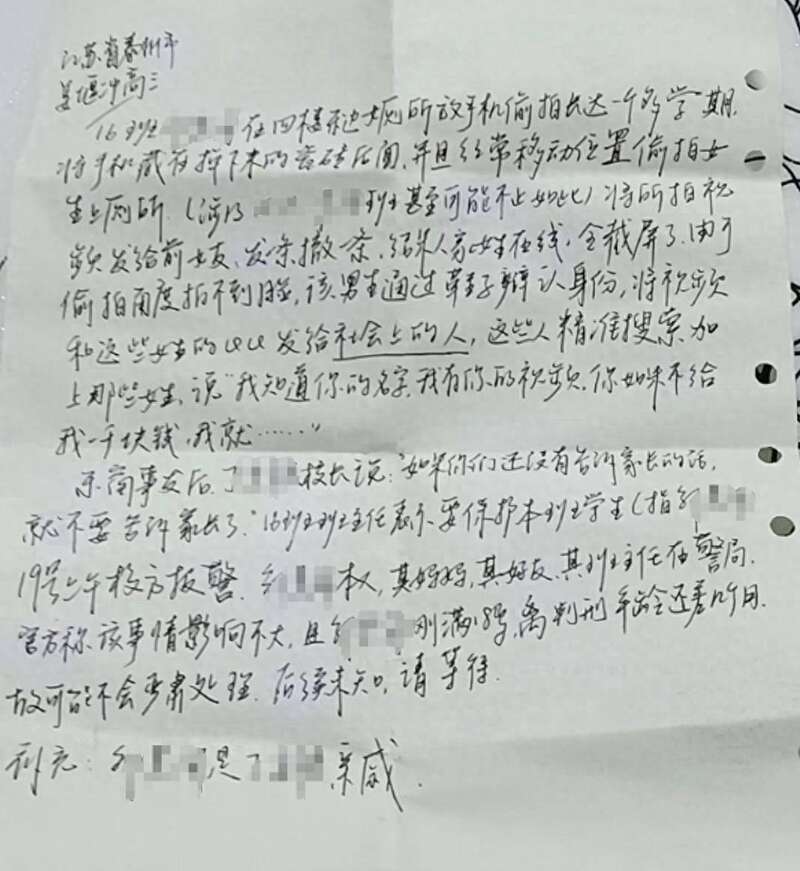 江苏省泰州市
姜堰中高三
16班 在四楼 女厕所放手机偷拍长达一个多学期.
将手机藏在掉下来的瓷砖后面,并且经常移动位置偷拍女
生上厕所.(涉及 班甚至可能不止如此)将所拍视
频发给前女友、发一条撤一条,结果人家女生在线,全截屏了.由于
偷拍角度拍不到脸,该男生通过鞋子辨认身份,将视频
和这些女生的QQ发给社会上的人,这些人精准搜索加
上那些女生、说“我知道你的名字,我有你的视频,你如果不给
我一千块钱,我就……”
东窗事发后, 校长说:“如果你们还没有告诉家长的话,
就不要告诉家长了.”16班班主任表示要保护本班学生(指
19号上午校方报警. 权,其妈妈,其好友、其班主任在警局.
官方称该事情影响不大,且 刚满18岁,离判刑年龄还差 个月.
故可能不会严肃处理.后续未知,请等待.
补充: 是 亲戚.